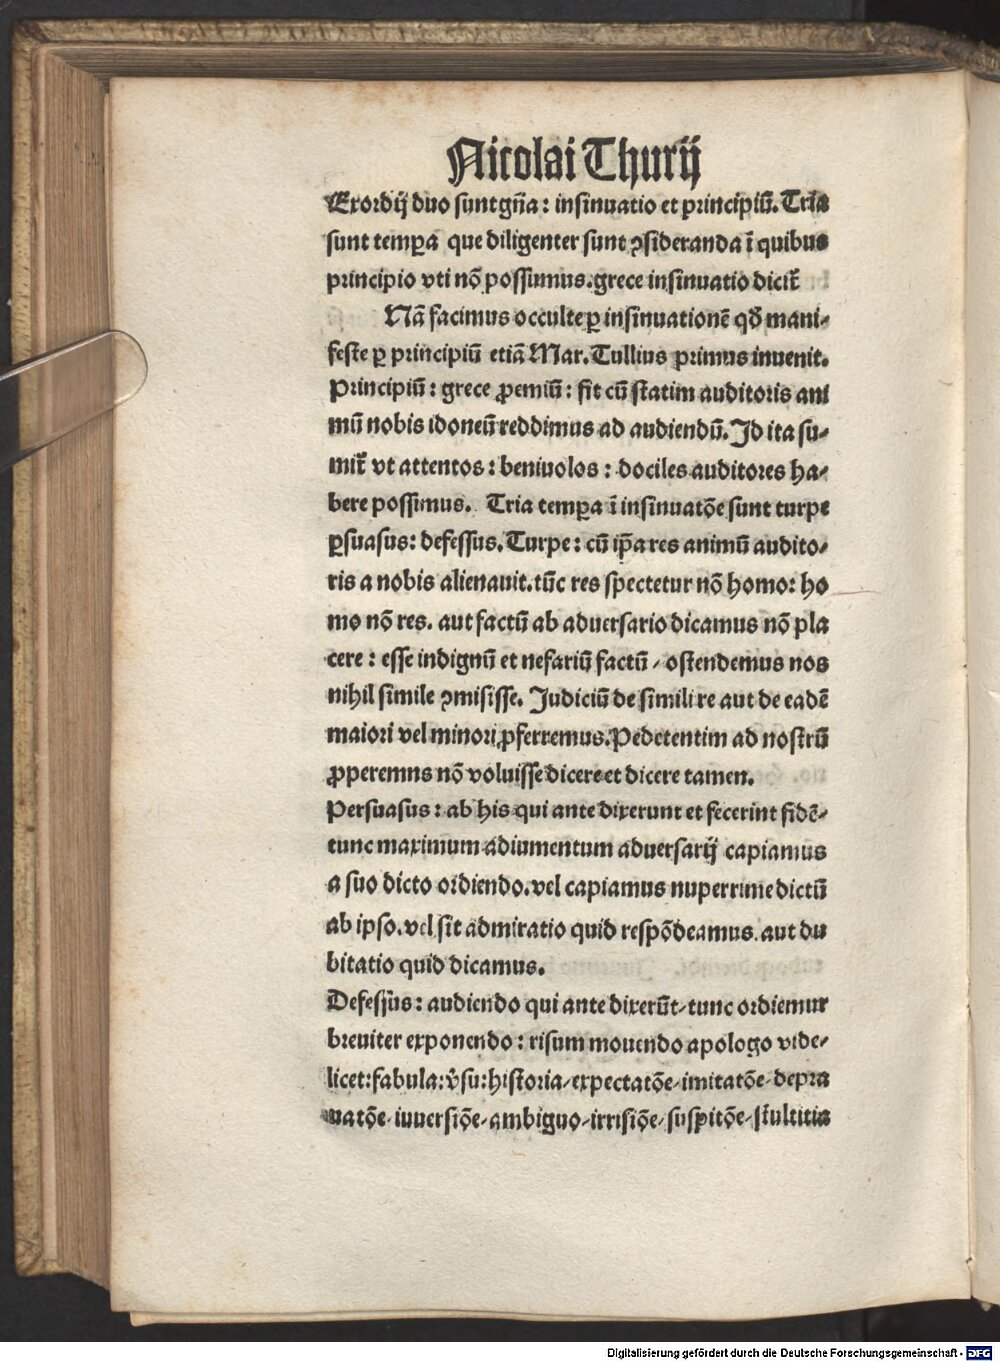 Nicolai Thurij
Exordij duo sunt gña: insinuatio et principiũ. Tria
sunt temꝑa que diligenter sunt ꝯsideranda ĩ quibus
principio vti nõ possumus. grece insinuatio dicit̃
Nã facimus occulte ꝑ insinuationẽ qð mani⸗
feste ꝑ principiũ etiã Mar. Tullius primus inuenit.
Principiũ: grece ꝓemiũ: fit cũ statim auditoris ani
mũ nobis idoneũ reddimus ad audiendũ. Id ita su⸗
mit̃ vt attentos: beniuolos: dociles auditores ha⸗
bere possimus. Tria temꝑa ĩ insinuatõe sunt turpe
ꝑsuasus: defessus. Turpe: cũ ip̃a res animũ audito⸗
ris a nobis alienauit. tũc res spectetur nõ homo: ho
mo nõ res. aut factũ ab aduersario dicamus nõ pla
cere: esse indignũ et nefariũ factũ / ostendemus nos
nihil simile ꝯmisisse. Judiciũ de simili re aut de eadẽ
maiori vel minori ꝓferremus. Pedetentim ad nostrũ
ꝓperemns nõ voluisse dicere et dicere tamen.
Persuasus: ab his qui ante dixerunt et fecerint fidẽ⸗
tunc maximum adiumentum aduersarij capiamus
a suo dicto ordiendo. vel capiamus nuperrime dictũ
ab ipso. vel sit admiratio quid respõdeamus. aut du
bitatio quid dicamus.
Defessus: audiendo qui ante dixerũt / tunc ordiemur
breuiter exponendo: risum mouendo apologo vide⸗
licet: fabula: v̾su: historia / expectatõe / imitatõe / depra
uatõe / iuuersiõe / ambiguo / irrisiõe / suspitõe / stultitia
Digitalisierung gefördert durch die Deutsche Forschungsgemeinschaft - DFG